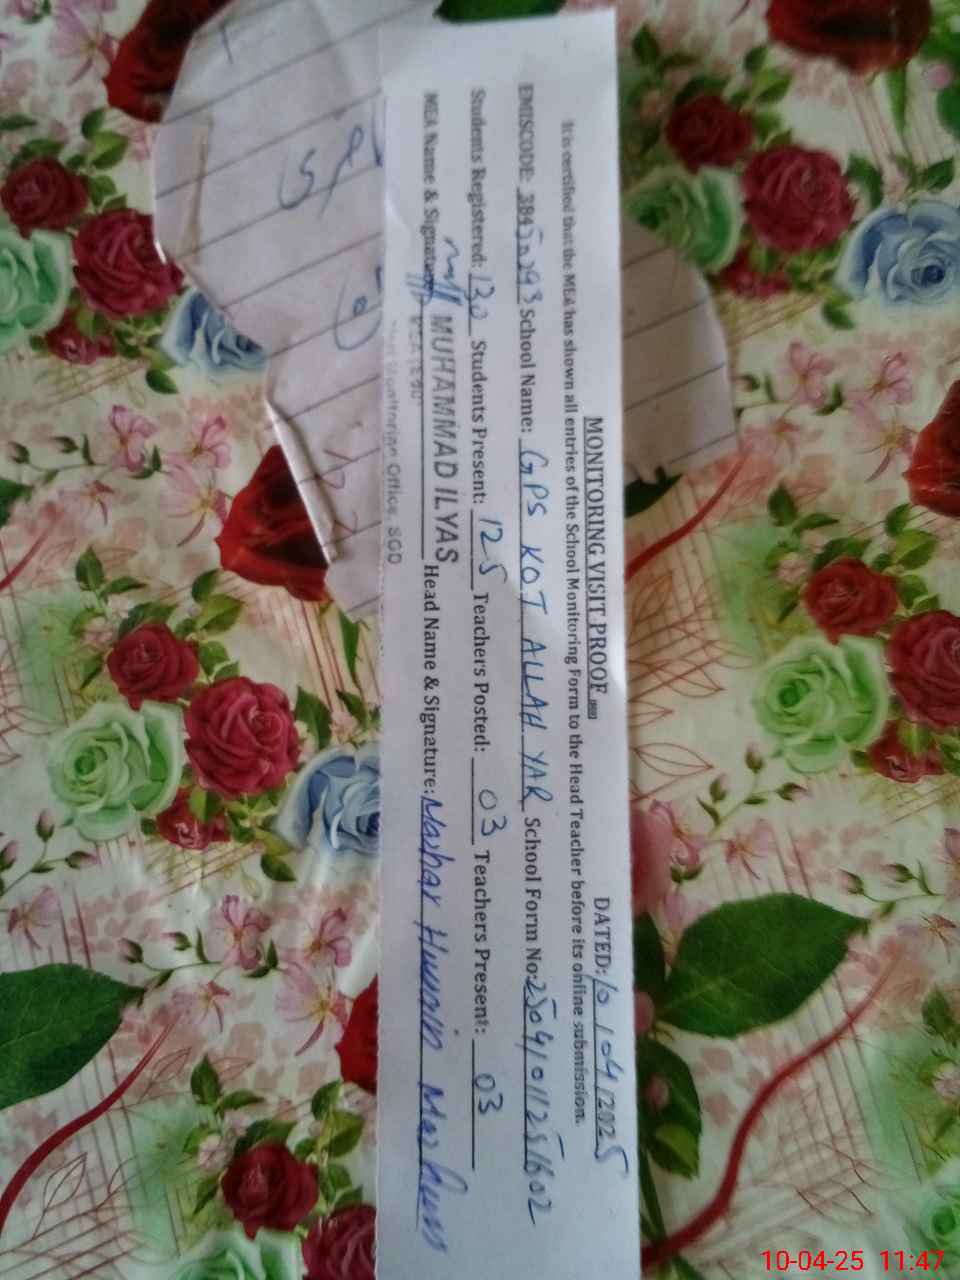 MONITORING VISIT PROOF
DATED: 10/04/2025
It is certified that the MEA has shown all entries of the School Monitoring Form to the Head Teacher before its online submission.
EMISCODE: 38450293 School Name: GPS KOT ALLAH YAR School Form No: 25041011251602
Students Registered: 130 Students Present: 125 Teachers Posted: 03 Teachers Present: 03
MEA Name & Signature MUHAMMAD ILYAS Head Name & Signature: Mazhar Hussain
Monitoring Office, SGD
10-04-25 11:47